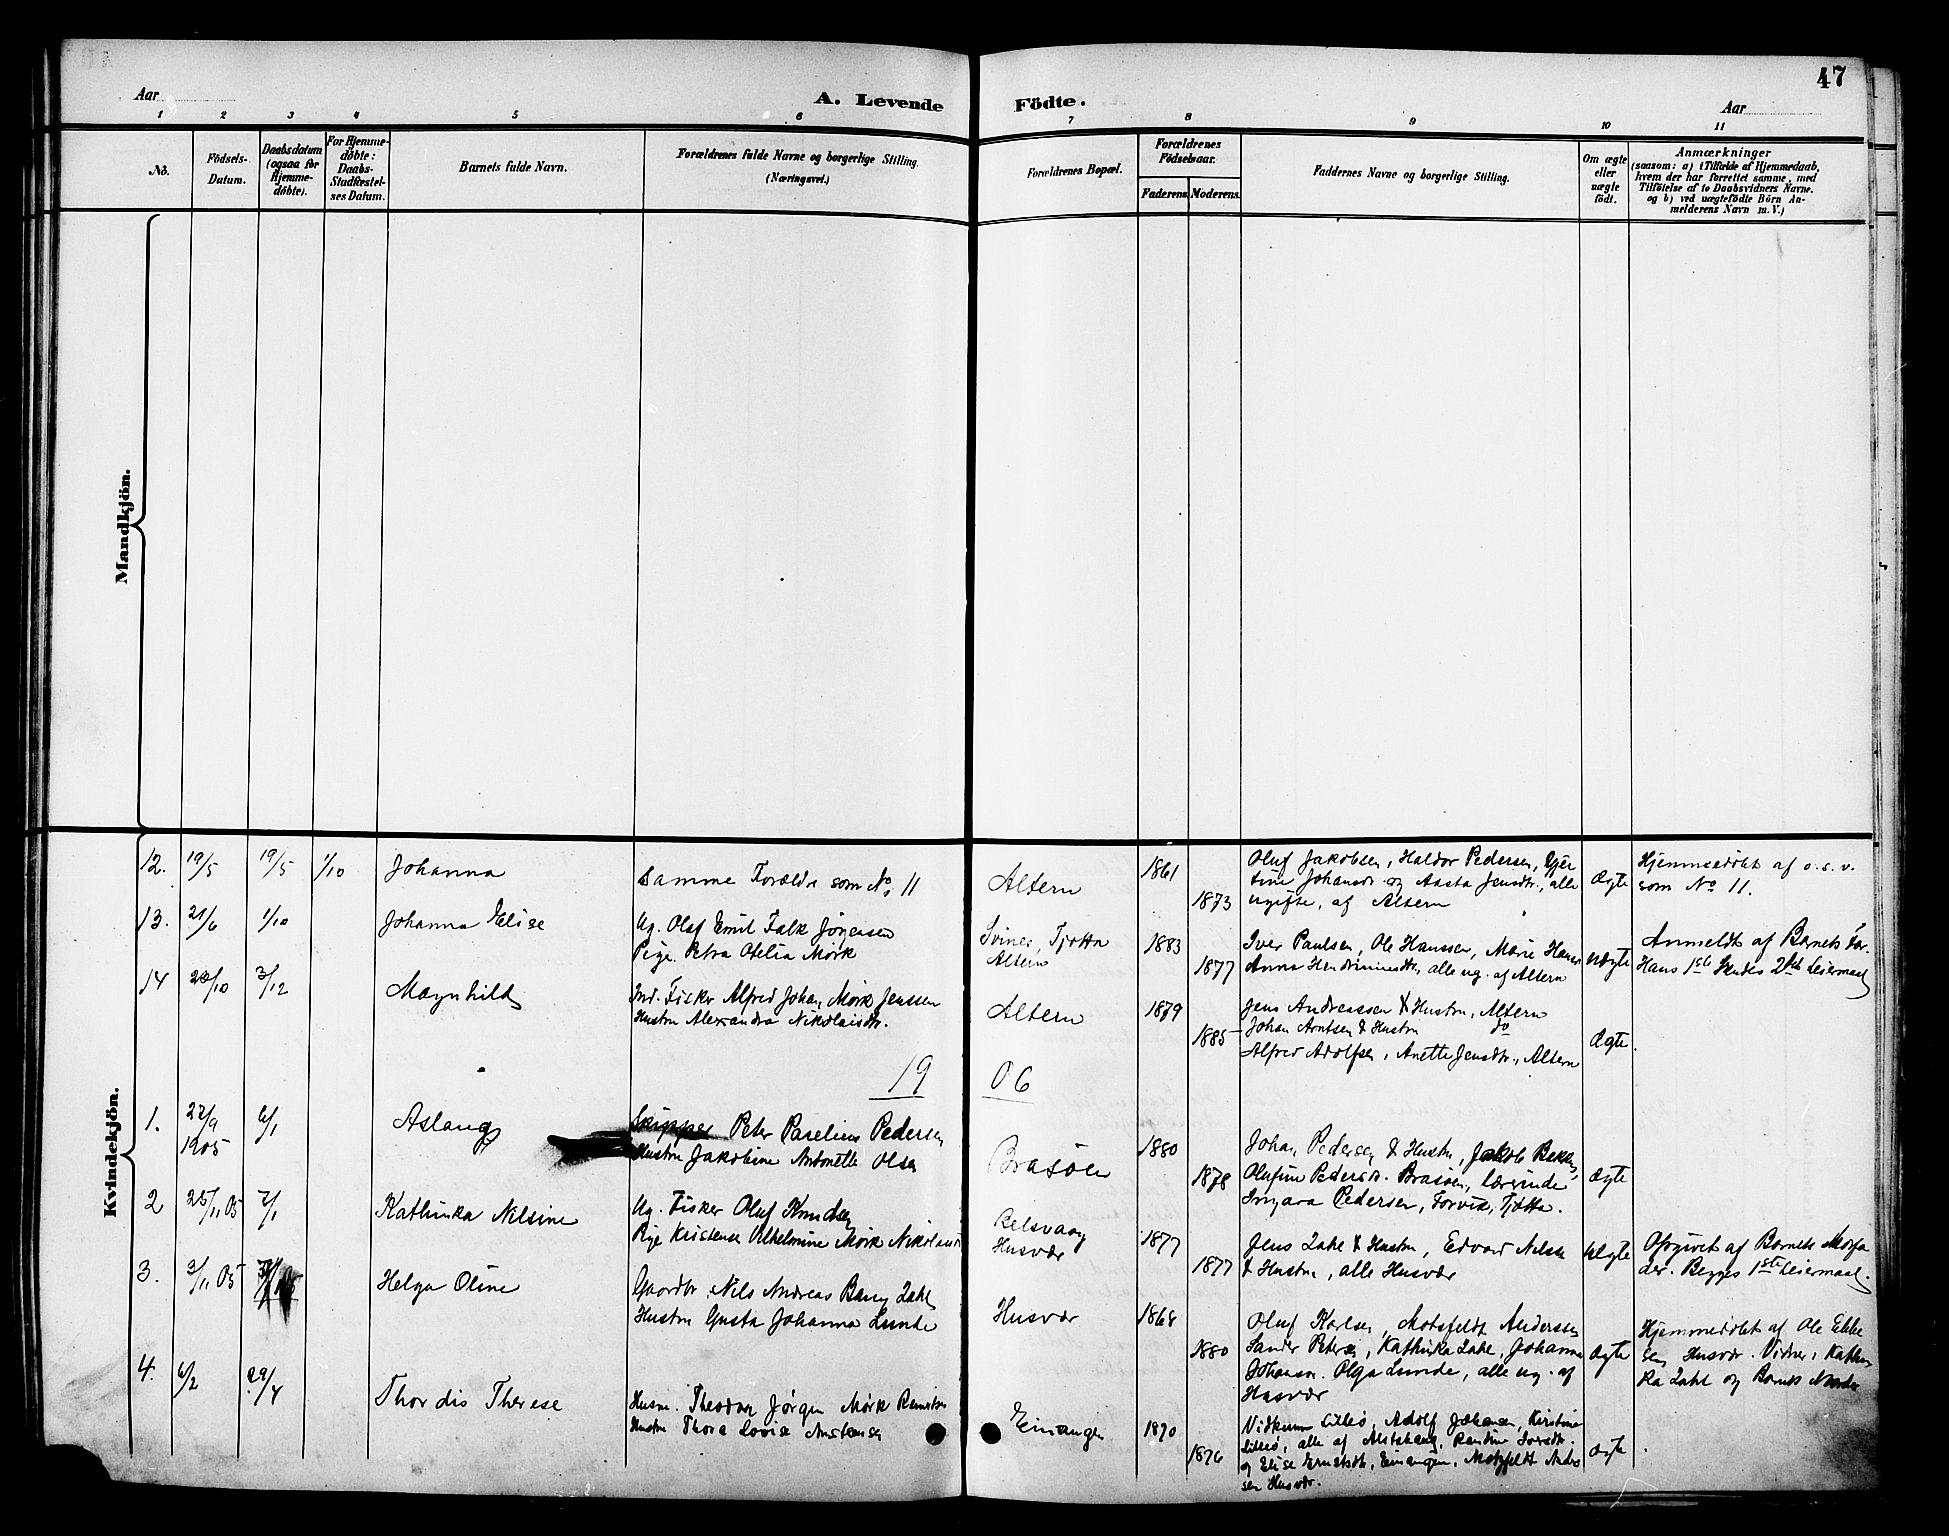 47
Aar
A. Levende Födte.
Aar
1 2 3 4 5 6 7 8 9 10 11
No.
Födsels-
Datum.
Daabsdatum
(ogsaa for
Hjemme-
døbte).
For Hjemme-
døbte:
Daabs-
Stadfæstel-
ses Datum.
Barnets fulde Navn.
Forældrenes fulde Navne og borgerlige Stilling.
(Næringsvei.)
Forældrenes Bopæl.
Forældrenes
Födselsaar.
Faderens. Moderens.
Faddernes Navne og borgerlige Stilling.
Om ægte
eller
uægte
født.
Anmærkninger
(saasom: a) i Tilfælde af Hjemmedaab,
hvem der har forrettet samme, med
Tilföielse af to Daabsvidners Navne.
og b) ved uægtefödte Börn An-
melderens Navn m. V.)
Mandkjön.
Kvindekjön.
12. 19/5 19/5 1/10 Johanna
Samme Forældre som No. 11
Altern
1861
1873
Oluf Jakobsen, Haldor Pedersen,
Johansdr. og Aasta Jensdtr., alle
ugifte, af Altern
Ægte
Hjemmedøbt af o.s.v.
som No 11.
13. 21/6 1/10 Johanna Elise
Ug. Olaf Emil Falk Jørgensen
Pige Petra Otelia Mørk
Svines, Tjøtta
Altern
1883
1877
Iver Paulsen, Ole Hanssen, Marie Hans
Anna alle ug. af Altern
Uægte
Anmeldt af Barnets Far.
Hans 1ste 2det Leiermaal
14 3/12 Magnhild
Ind. Fisker Alfred Johan Mørk Jenssen
Hustru Alexandra Nikolaisdtr.
Altern
1879
1885
Jens Andreassen & Hustru, Altern
Johan Arntsen & Hustru do
Alfred Adolfsen, Anette Jensdtr., Altern
Ægte.
1906
1. 27/9
1905
6/1 Aslaug
Skipper Peter Parelius Pedersen
Hustru Jakobine Antonette Olsen
Brasøen
1880
1878
Johan Pedersen & Hustru, Jakob
Olufine Pedersdtr. Brasøen, lærerinde
Ingara Pedersen, Forvik, Tjøtta.
Ægte
2 25/11 05 7/1 Kathinka Nilsine
Ug. Fisker Oluf Knudsen
Pige Kristense Vilhelmine Mørk
Belsvaag
Husvær
1877
1877
Jens Zahl & Hustru, Edvard Nilsen
& Hustru, alle Husvær
Uægte
Opgivet af Barnets Morfa
der. Begges 1ste Leiermaal.
3. 3/11 05 Helga Oline
Gaardbr. Nils Andreas Bang Zahl
Hustru Gusta Johanna Lunde
Husvær
1868
1880
Oluf Karlsen, Motzfeldt Anderssen
Sander Petersen, Kathinka Zahl, Johanna
Johansen Olga Lunde, alle ug. af
Husvær
Ægte
Hjemmedøbt af Ole Ebbe
sen Husvær. Vidner, Kathin
ka Zahl og Barnets Moder
4. 6/2 29/4 Thordis Therese
Husm. Theodor Jørgen Mørk
Hustru Thora Lovise
Einangen
1870
1876
Vidkunn Lilleø, Adolf Johansen, Kirstine
Lilleø, alle af Alstahaug,
og Elise Ernstsdtr., Einangen, Motzfeldt Anders
sen Husvær.
Ægte